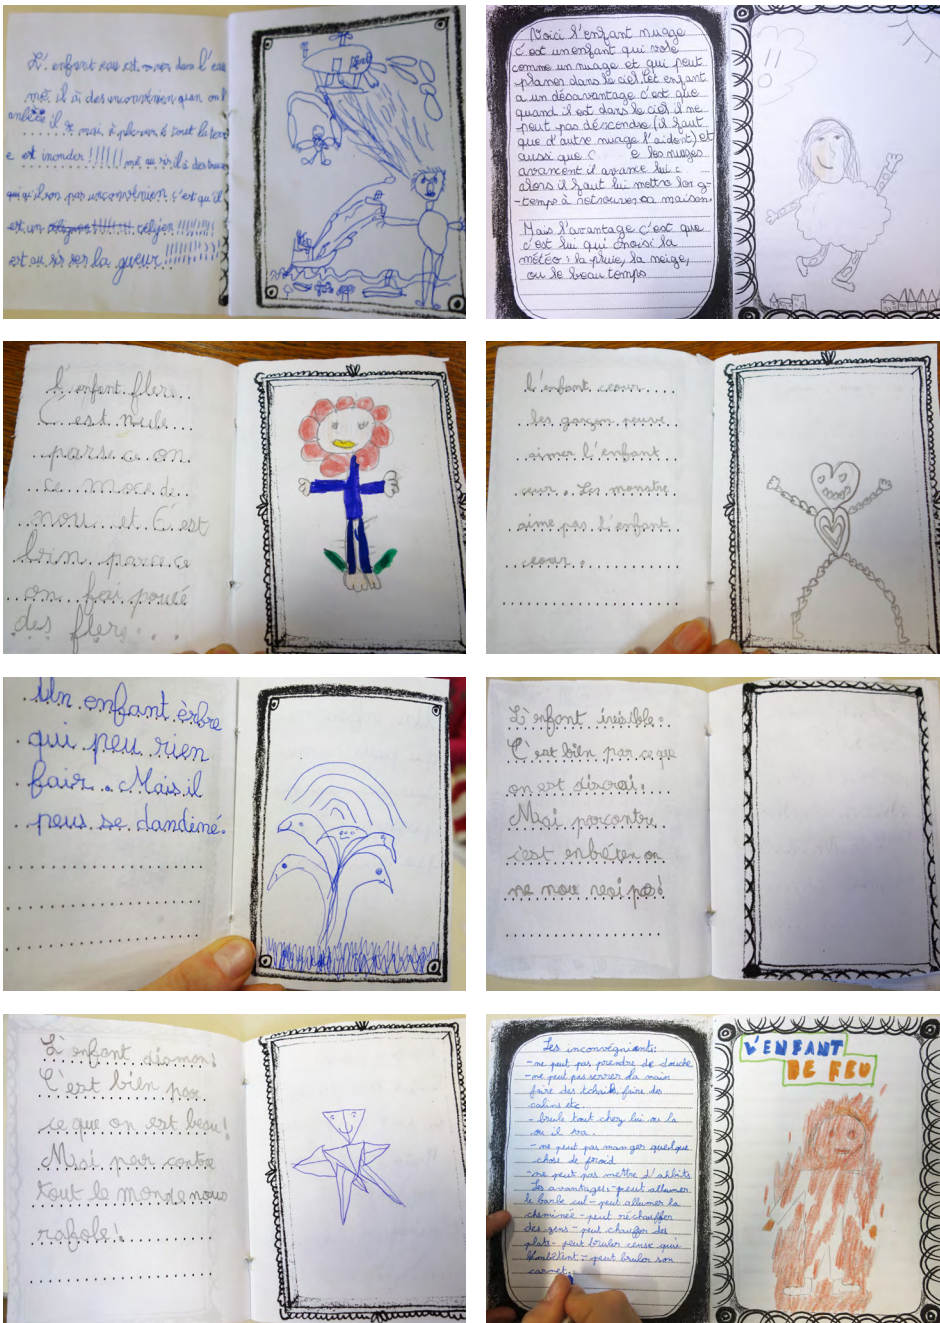 L'enfant eau est dans l'eau
il a des inconvénien quan on l
embête il à pleurer é tout la terre
e est inonder !!!!!!
pas inconvénien c'est qu'il
est un
est sur la
Voici l'enfant nuage
c'est un enfant qui vole
comme un nuage et qui peut
planer dans le ciel. Cet enfant
a un désavantage c'est que
quand il est dans le ciel il ne
peut pas déscendre (il faut
que d'autre nuage l'aident) et
aussi que les nuages
avancent il avance lui
alors il faut lui mettre long-
-temps à retrouver sa maison.
Mais l'avantage c'est que
c'est lui qui choisi la
météo : la pluie, la neige,
ou le beau temps
L'enfant flere
C'est nule
parse ce on
ce moce de
nou et C'est
bien parce ce
on fai poucé
des flere...
L'enfant cœur
les garçon peuve
aimer l'enfant
cœur. Les monstre
aime pas l'enfant
cœur.
Un enfant èrbre
qui peu rien
fair. Mais il
peus se dandené.
L'enfant invisible.
C'est bien par ce que
on est discrai.
Mai parcontre
c'est enbéten on
ne nou voi pas!
L'enfant diamens
C'est bien par
ce que on est beau!
Mai par contre
tout le monde nous
rafole!
Les inconvégniants:
-ne peut pas prendre de douche
-ne peut pas serrer la main
faire des tchaik faire des
caline etc.
- brule tout chez lui ou la
ou il va.
-ne peut pas manger quelque
chose de froid
-ne peut pas mettre d'abits
Les avantages -peut allumer
le barbe cul - peut allumer la
cheminée - peut réchauffer
des gens - peut chauffer des
plats - peut bruler ceuse qui
l'embêtent - peut bruler son
carnet.
L'ENFANT
DE FEU